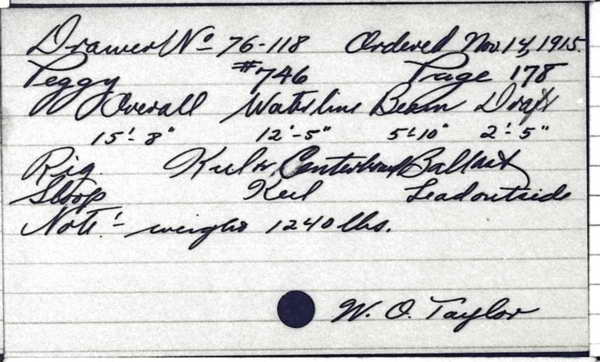 Drawer No 76-118 Ordered Nov. 14, 1915.
Peggy #746 Page 178
Overall Waterline Beam Draft
15'-8" 12'-5" 5'-10" 2'-5"
Rig. Keel or Centerboard Ballast
Sloop Keel Lead outside
Note:- weighs 1240 lbs.
W. O. Taylor